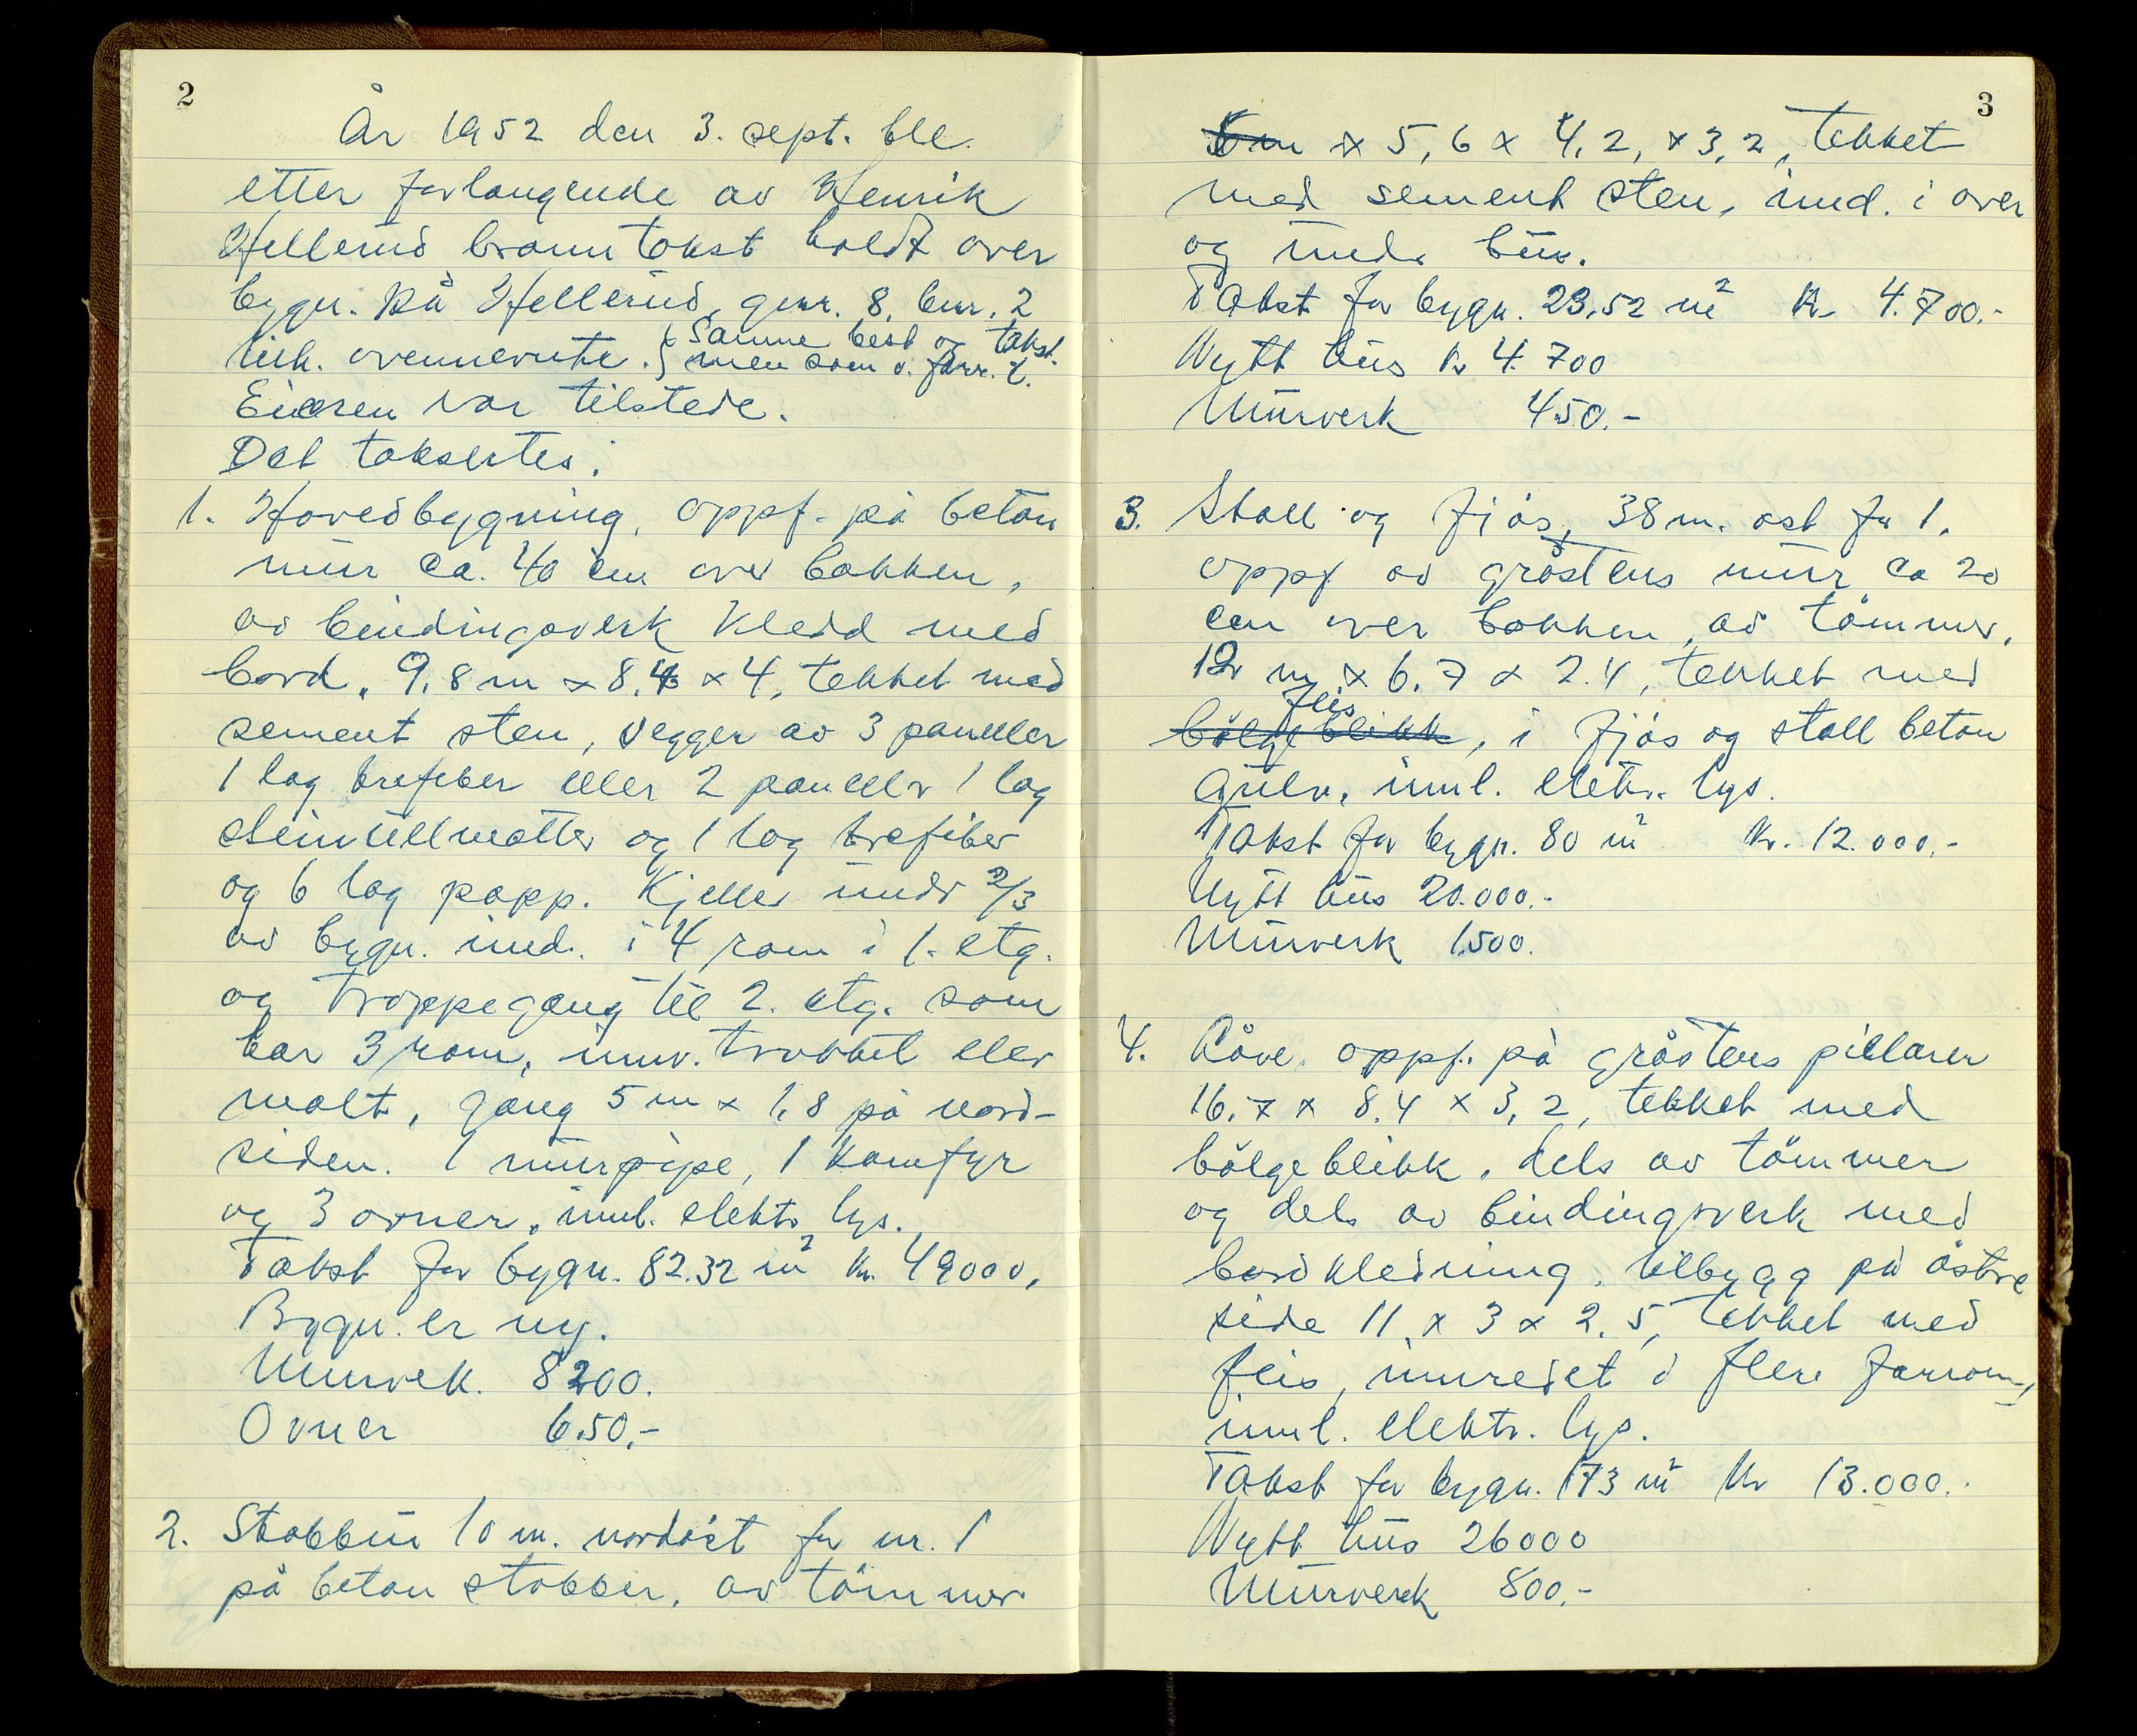 2
År 1952 den 3. sept. ble
etter forlangende av Henrik
Hellerud branntakst holdt over
bygn. på Hellerud, gnr. 8, bnr. 2
tilh. ovennevnte. { Samme best og takst.
men som v. forr. t.
Eieren var tilstede.
Det taksertes:
1. Hovedbygning, oppf. på beton
mur ca. 40 cm over bakken,
av bindingsverk kledd med
bord. 9,8 m x 8,4 x 4, tekket med
sement sten, vegger av 3 paneler
1 lag trefiber eller 2 paneler 1 lag
steinullmatter og 1 lag trefiber
og 6 lag papp. Kjeller under 2/3
av bygn. innd. i 4 rom i 1. etg.
og trappegang til 2. etg. som
har 3 rom, innv. trukket eler
malt, gang 5 m x 1,8 på nord-
siden. 1 murpipe, 1 komfyr
og 3 ovner, innl. elektr lys.
Takst for bygn. 82.32 m² kr. 49000.
Bygn. er ny.
Murverk. 8200.
Ovner 650.-
2. Stabbur 10 m. nordøst for nr. 1
på beton stabber, av tømmer
3
5 m x 5,6 x 4,2, x 3,2, tekket
med sement sten, innd. i over
og under bur.
Takst for bygn. 23,52 m² kr 4.700.-
Nytt hus kr 4.700
Murverk 450.-
3. Stall og fjøs, 38 m. øst for 1.
oppf av gråstens mur ca 20
cm over bakken, av tømmer,
12 m x 6.7 x 2.4, tekket med
flis
bølgeblikk, i fjøs og stall beton
gulv, innl. elektr. lys.
Takst for bygn. 80 m² kr. 12.000.-
Nytt hus 20.000.-
Murverk 1.500.
4. Låve oppf. på gråstens pillarer
16.7 x 8.4 x 3,2, tekket med
bølgeblikk, dels av tømmer
og dels av bindingsverk med
bordkledning, tilbygg på østre
side 11 x 3 x 2.5, tekket med
flis, innredet i flere forrom,
innl. elektr. lys.
Takst for bygn. 173 m² kr 13.000.-
Nytt hus 26000
Murverk 800.-